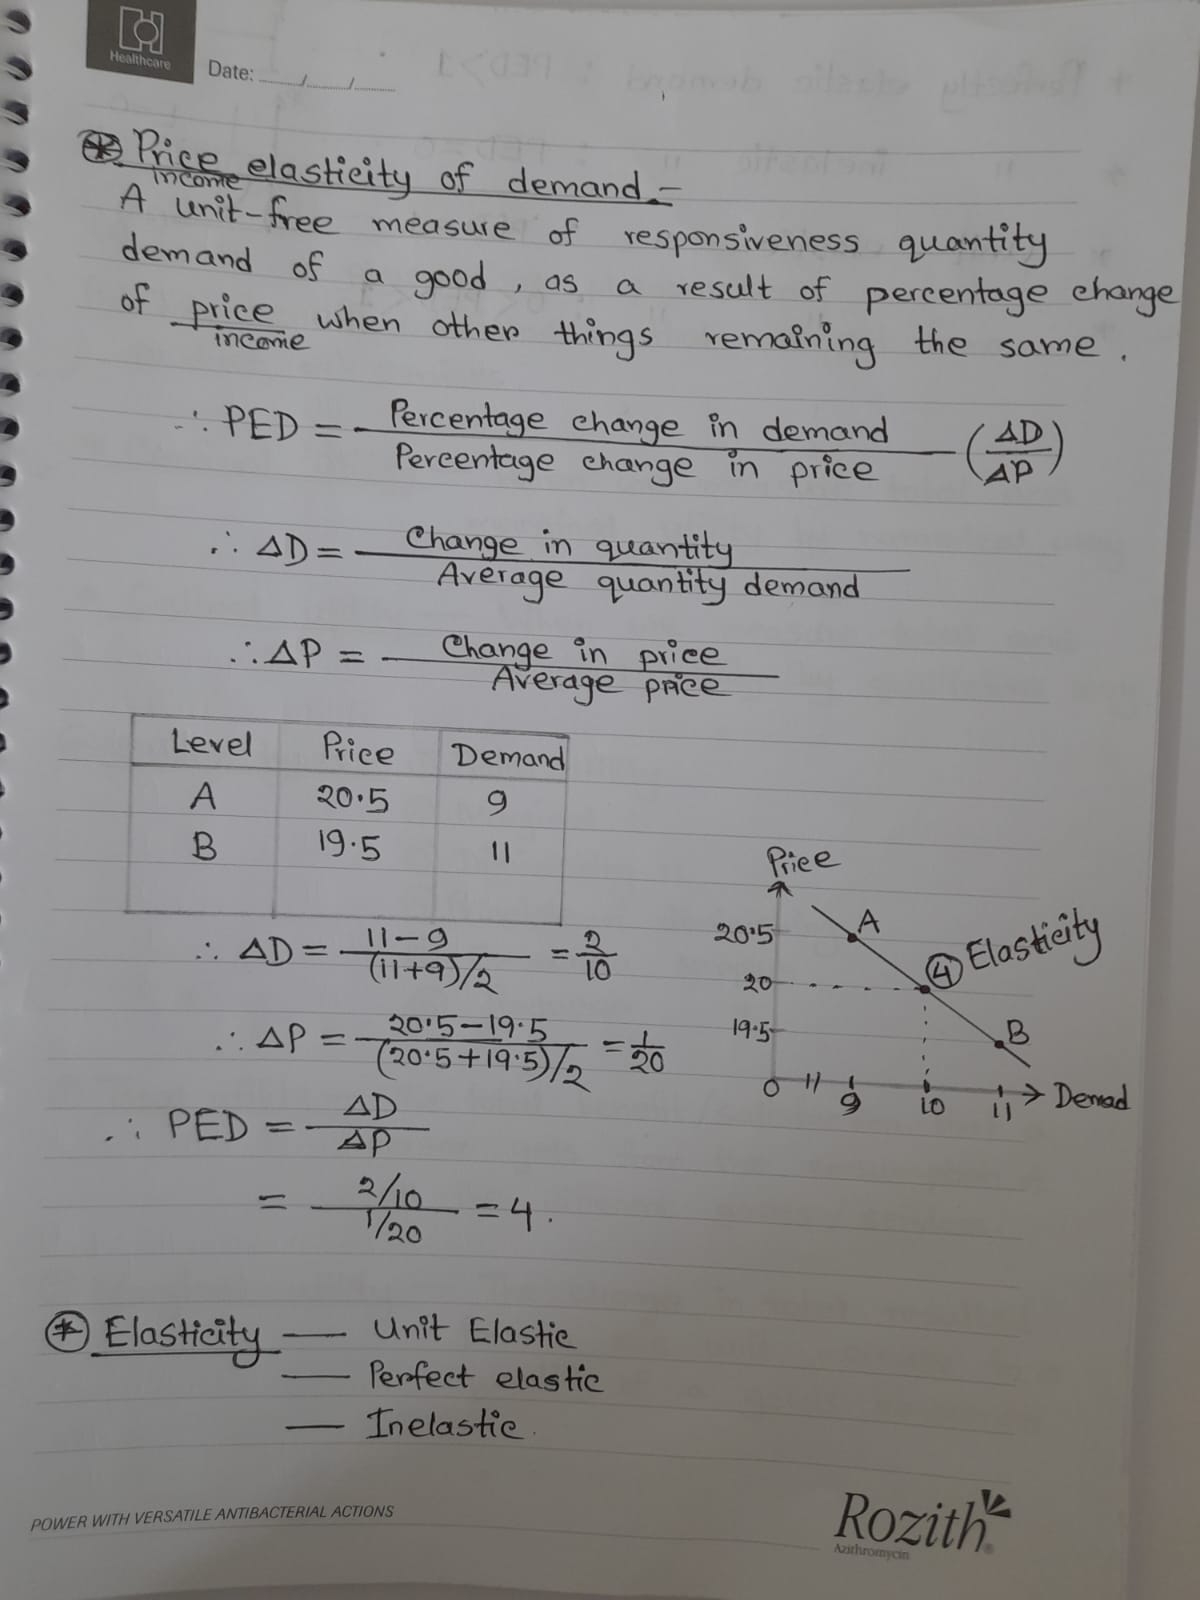 Healthcare
Date: ....../....../......
⊛ Price elasticity of demand –
income
A unit-free measure of responsiveness quantity
demand of a good, as a result of percentage change
of price when other things remaining the same.
income
∴ PED = Percentage change in demand / Percentage change in price (ΔD/ΔP)
∴ ΔD = Change in quantity / Average quantity demand
∴ ΔP = Change in price / Average price
Level Price Demand
A 20.5 9
B 19.5 11
∴ ΔD = 11-9 / (11+9)/2 = 2/10
∴ ΔP = 20.5-19.5 / (20.5+19.5)/2 = 1/20
∴ PED = ΔD/ΔP
= 2/10 / 1/20 = 4.
Price
20.5 A
20 ④ Elasticity
19.5 B
0 9 10 11 Demad
⊛ Elasticity — Unit Elastic
— Perfect elastic
— Inelastic.
POWER WITH VERSATILE ANTIBACTERIAL ACTIONS
Rozith®
Azithromycin